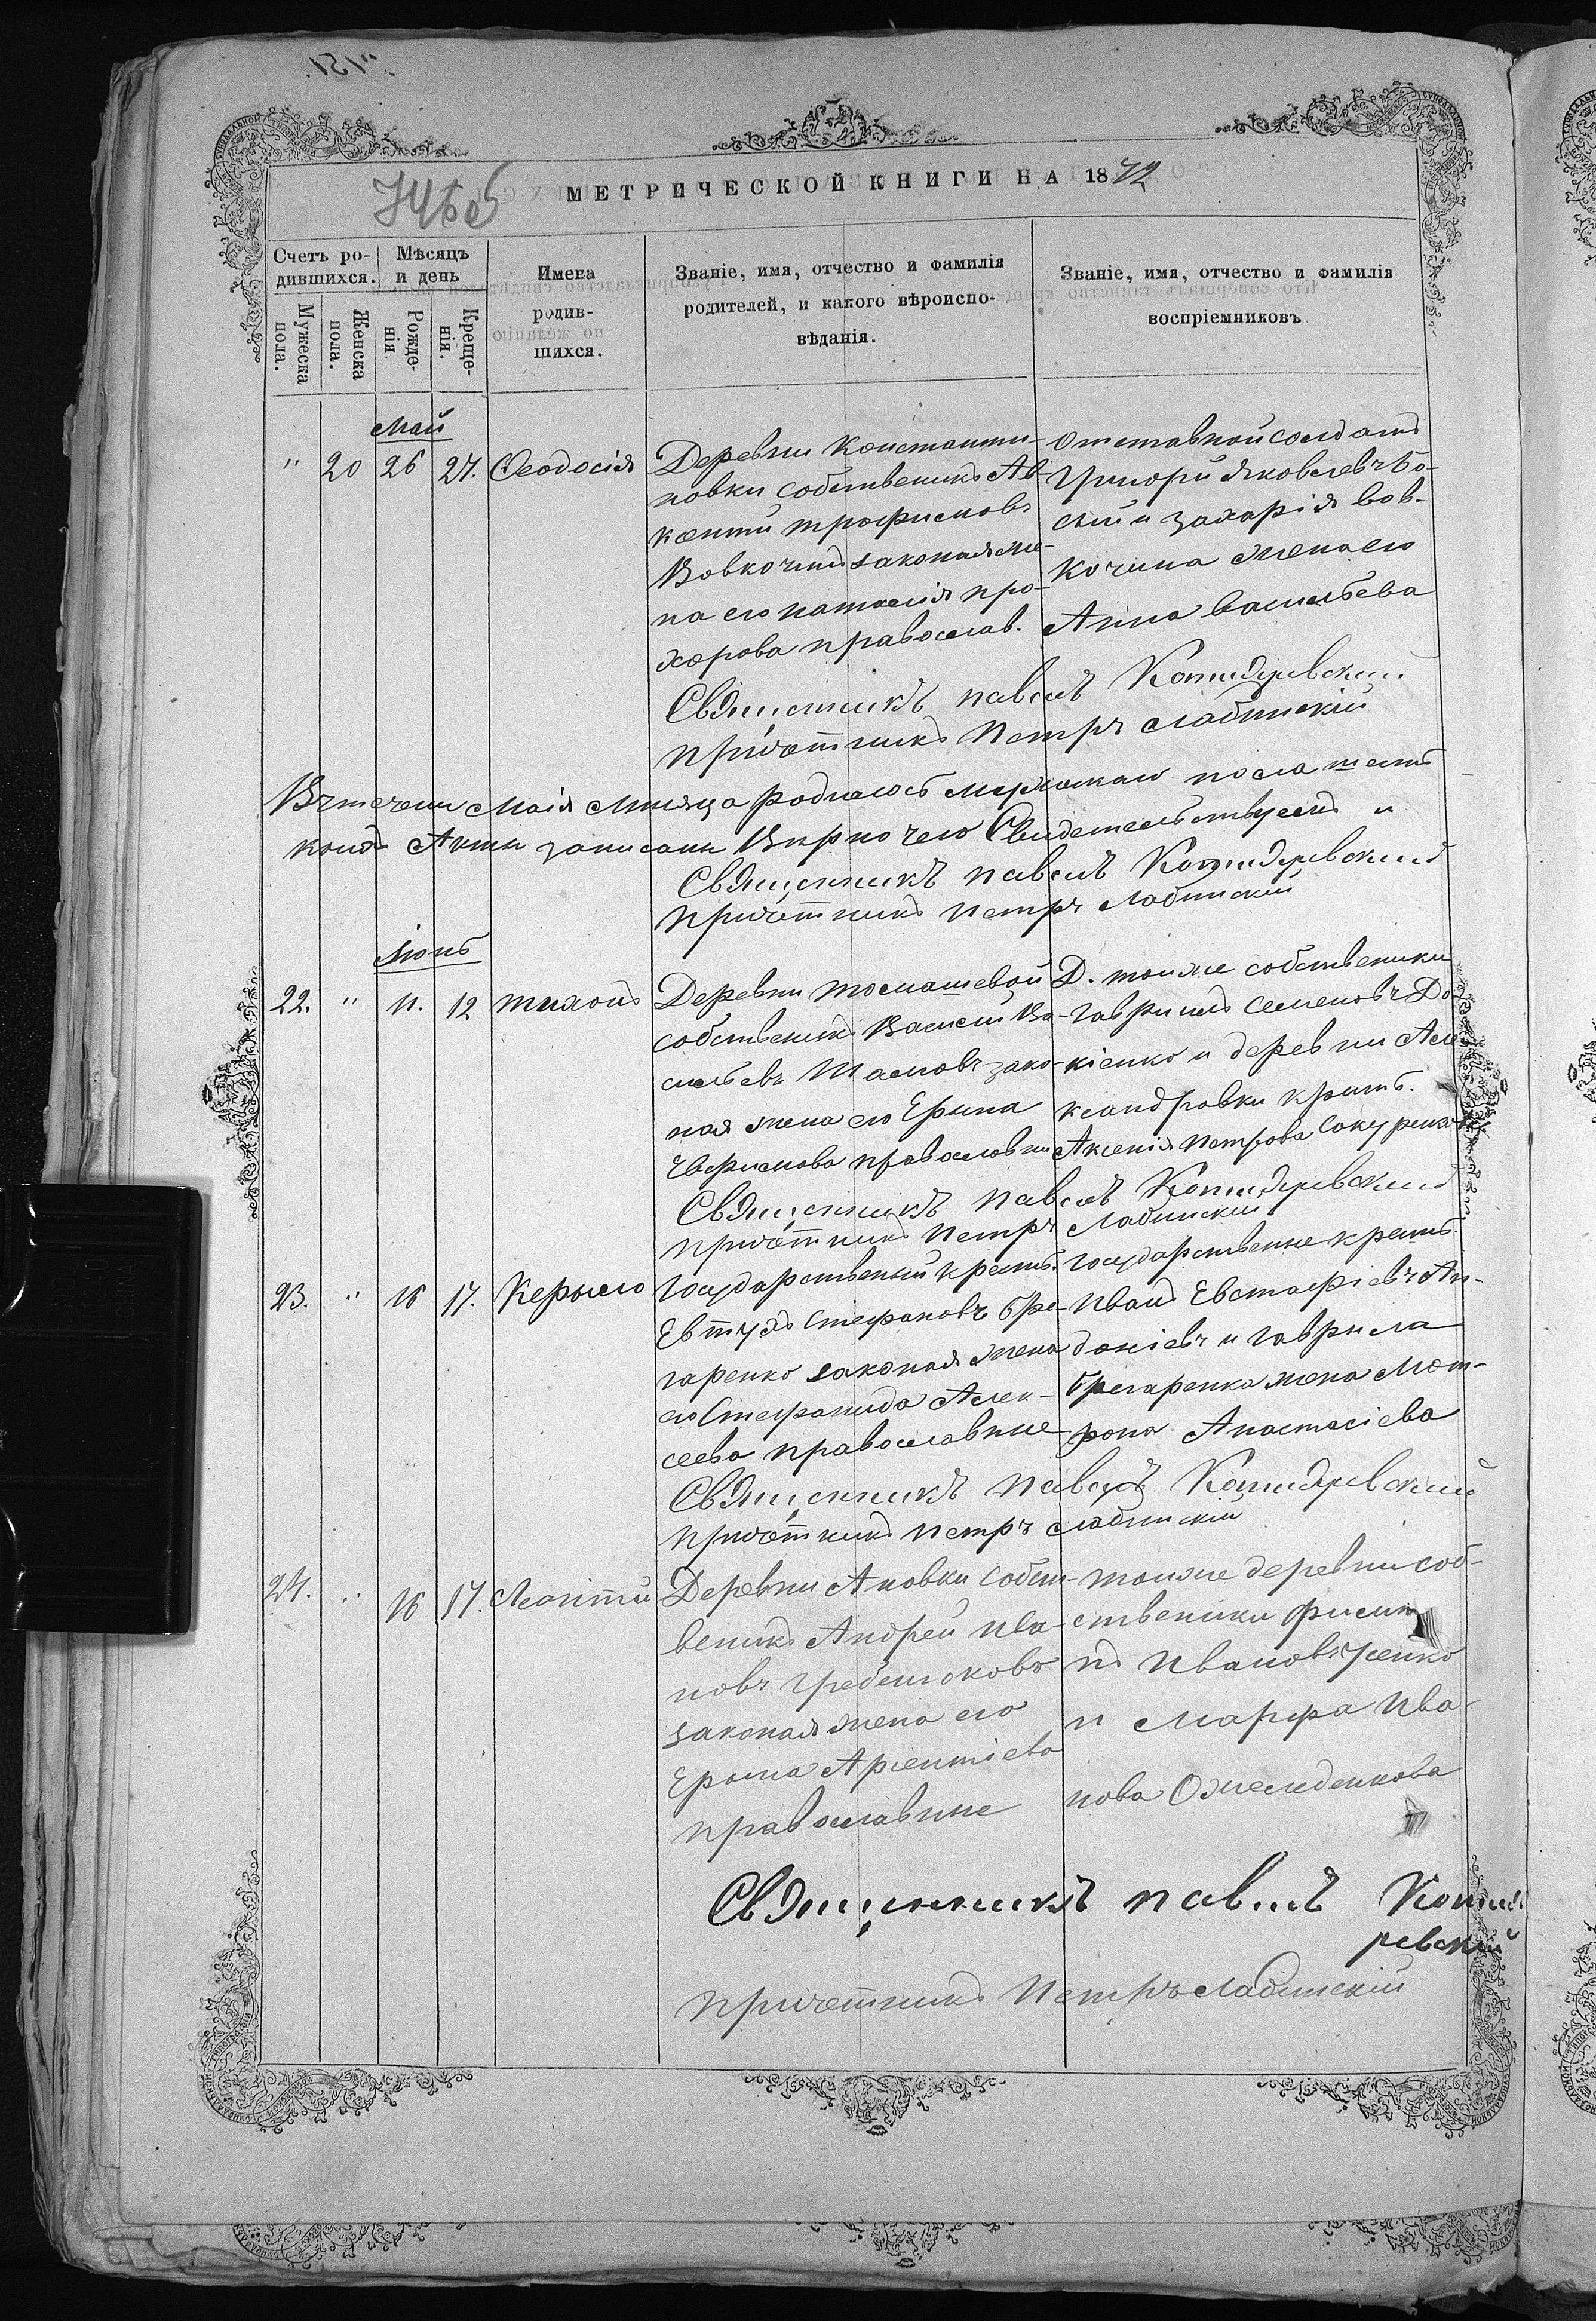 МЕТРИЧЕСКОЙ КНИГИ НА 1872
Счетъ ро-
дившихся.
Мѣсяцъ
и день
Мужеска
пола.
Женска
пола.
Рожде-
нія
Креще-
нія.
Имена
родив-
шихся.
Званіе, имя, отчество и фамилія
родителей, и какого вѣроиспо-
вѣданія.
Званіе, имя, отчество и фамилія
воспріемниковъ
Май
" 20 26 27. Феодосія
Деревни Константи-
новки собственикъ
Трофимовъ
Вовкочинъ законая же-
на его про-
хорова православ.
отставной солдатъ
Григорій Яковлевъ Бо-
и Захарія Вов-
кочина жена его
Анна Васильева
Священникъ Павелъ Котляревский
Причотникъ Петръ Слабинскій
Втечени Маія Месяца родилось Мужскаго пола
Акты записаны Вярно чемъ Свидетельствуемъ
Священникъ Павелъ Котляревский
Причотникъ Петръ Слабинскій
Іюнь
22. " 11. 12 Тихонъ
Деревни Томашевой
собственикъ Василій Ва-
сильевъ зако-
ная жена его Ерина
православни
Д. тоиже собственики
Гавриилъ Семеновъ До-
кіенко и деревни Але-
ксандровки крест.
Аксенія Петрова
Священникъ Павелъ Котляревский
Причотникъ Петръ Слабинскій
23. " 16 17. Керыло
Государственый крест.
Евтухъ Стефановъ Бре-
гаренко законая жена
его Стефанида Алек-
сеева православные
Государственые крест.
Иванъ Евстафіевъ Ан-
доніевъ и Гаврила
Брегаренка жена Мот-
рона Анастасіева
Священникъ Павелъ Котляревский
Причотникъ Петръ Слабинскій
24. " 16 17. Леонтій
Деревни Ановки собст-
веникъ Андрей Ива-
новъ Гребенюковъ
законая жена его
Ерына Арсентіева
православные
тоиже деревни соб-
ственики Филип
пъ Ивановъ Усенко
и Марфа Ива-
нова Омеледенкова
Священникъ Павелъ Котля
ревский
Причетникъ Петръ Слабинскій